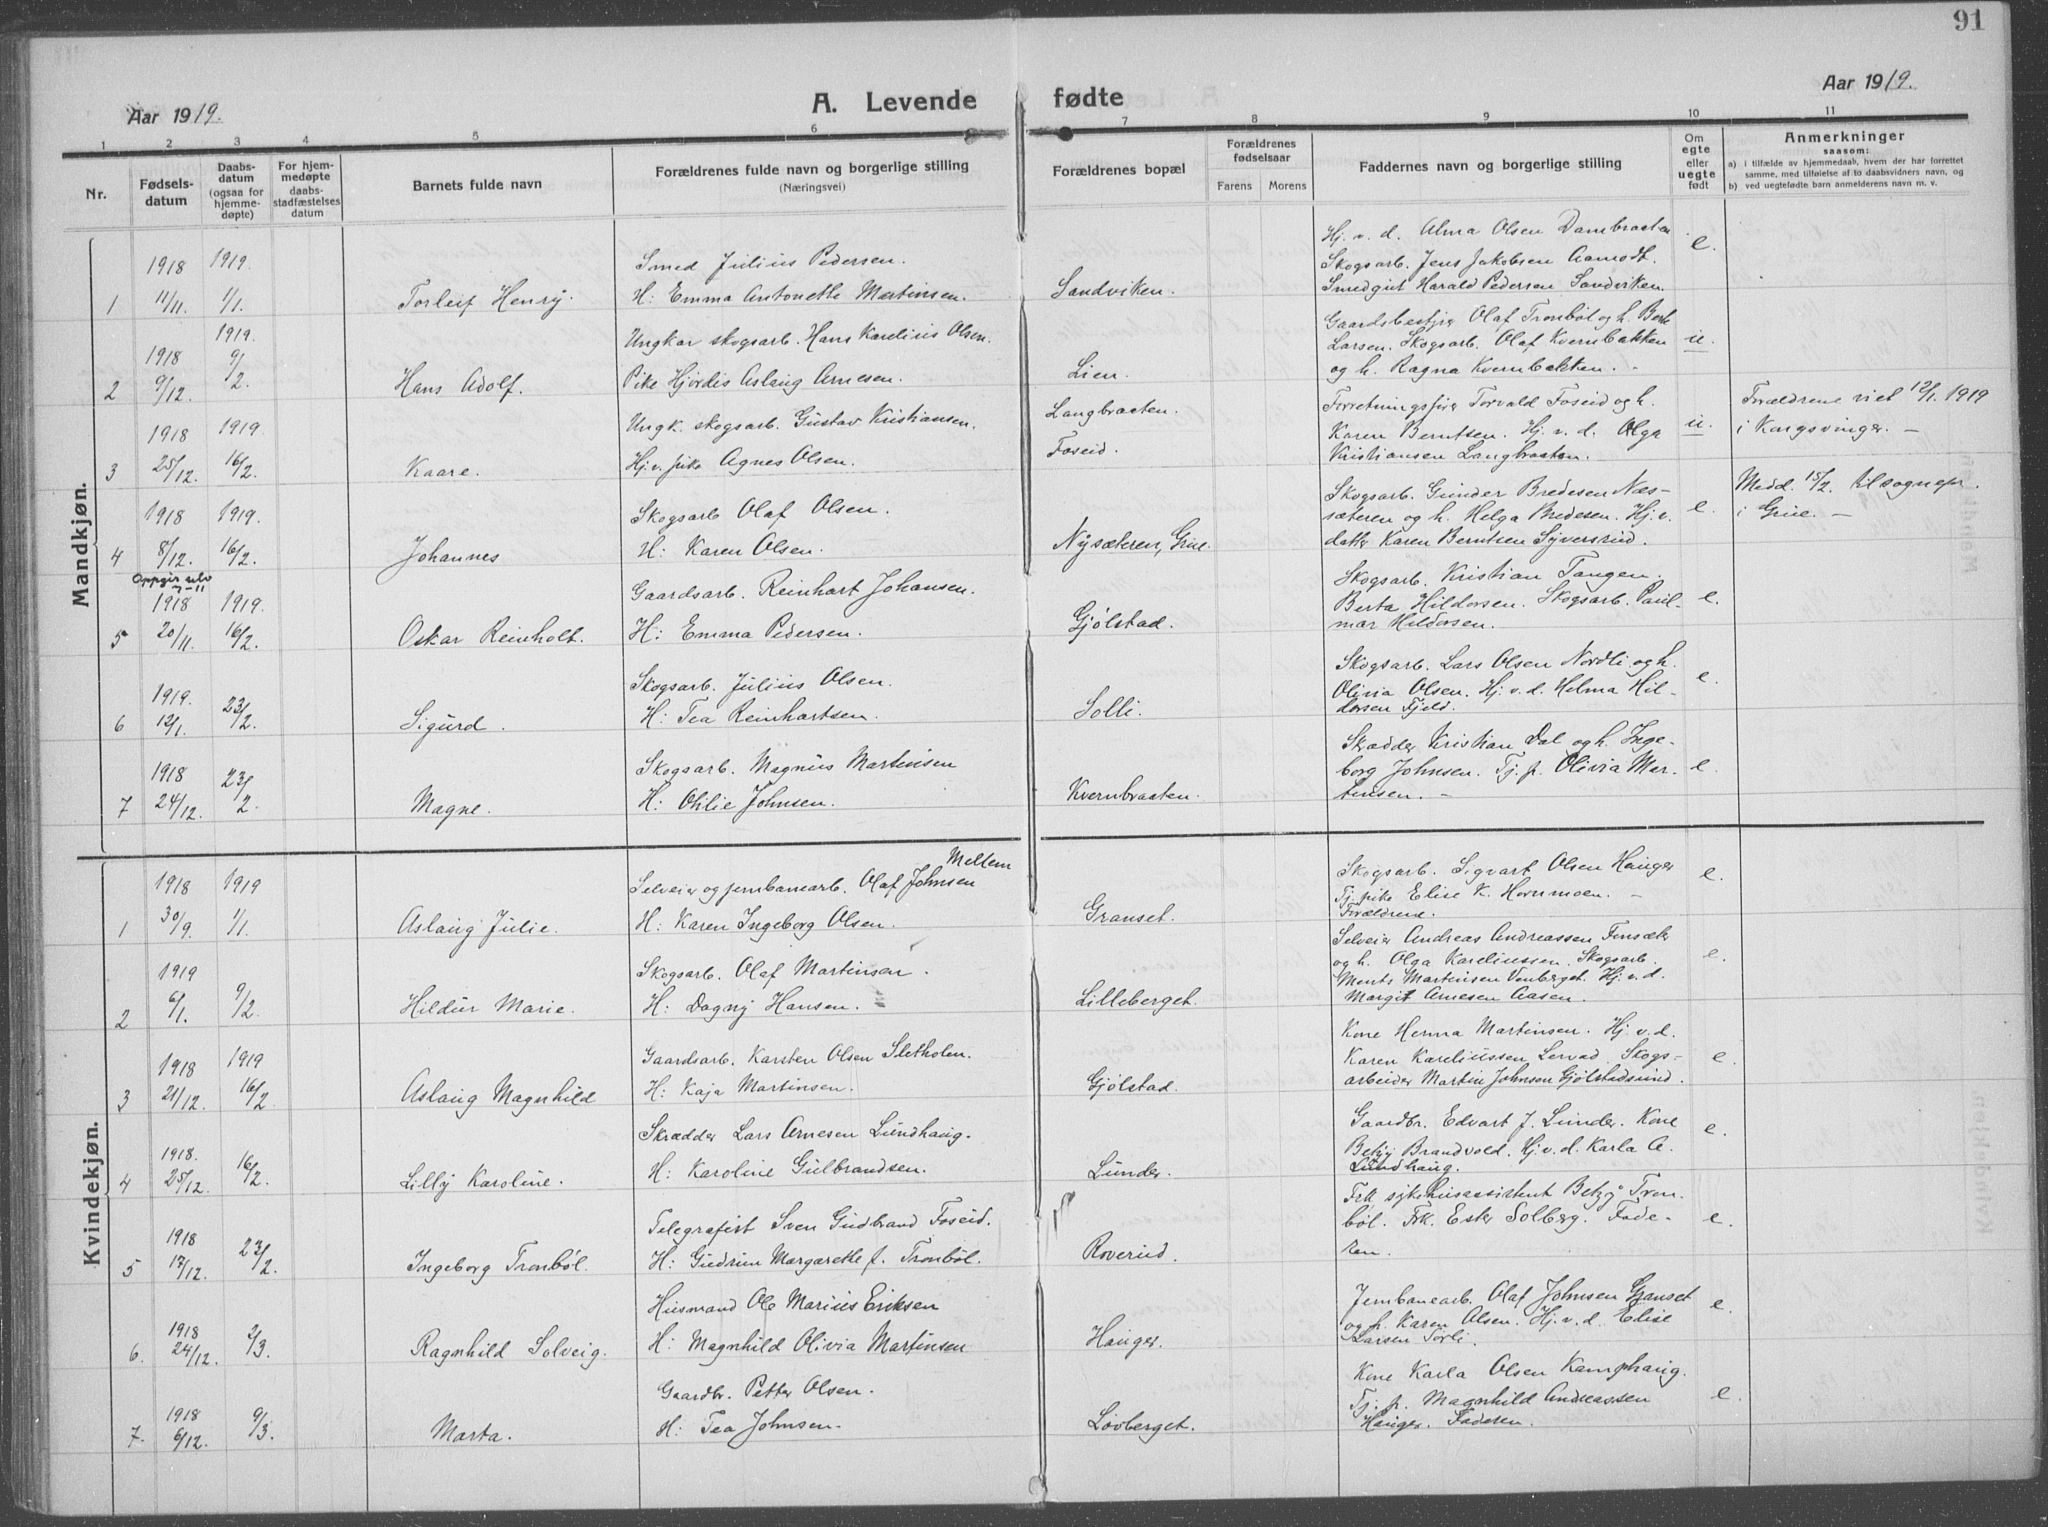 91
Aar 1919.
A. Levende fødte
Aar 1919.
1 2 3 4 5 6 7 8 9 10 11
Nr.
Fødselsdatum
Daabsdatum (ogsaa for hjemmedøpte)
For hjemmedøpte daabsstadfæstelses datum
Barnets fulde navn
Forældrenes fulde navn og borgerlige stilling (Næringsvei)
Forældrenes bopæl
Forældrenes fødselsaar
Farens Morens
Faddernes navn og borgerlige stilling
Om egte eller uegte født
Anmerkninger
saasom:
a) i tilfælde av hjemmedaab, hvem der har forrettet samme, med tilføielse av to daabsvidners navn, og
b) ved uegtefødte barn anmelderens navn m. v.
Mandkjøn.
1 1918 11/11. 1919. 1/1. Torleif Henry.
Smed Julius Pedersen.
H: Emma Antonette Martinsen.
Sandviken.
Hj. v. d. Alma Olsen Dambraaten
Skogsarb. Jens Jakobsen Aamodt.
Smedgut Harald Pedersen Sandviken.
e.
2 1918 9/12. 1919. 9/2. Hans Adolf.
Ungkar skogsarb. Hans Karelius Olsen.
Pike Hjördis Aslaug Arnesen.
Lien.
Langbraaten.
Gaardsbestyrer Olaf Tronböl og h. Berte
Larsen. Skogsarb. Olaf Kvernbakken
og h. Ragna Kvernbakken.
u.
3 1918 25/12. 1919. 16/2. Kaare.
Ungk. skogsarb. Gustav Kristiansen.
Hj. v. pike Agnes Olsen.
Foseid.
Forretningsfører Torvald Foseid og h.
Karen Berntsen. Hj. v. d. Olga
Kristiansen Langbraaten.
u.
Forældrene viet 12/1. 1919
i Kongsvinger. —
4 1918 8/12. 1919. 16/2. Johannes
Skogsarb Olaf Olsen.
H: Karen Olsen.
Nysæteren, Grue.
Skogsarb. Gunder Bredesen Næs-
sæteren og h. Helga Bredesen. Hj. v.
datter Karen Berntsen Syversrud.
e.
Medd. 15/2. til sognepr.
i Grue. —
5 Oppgir selv 7-11
1918 20/11. 1919. 16/2. Oskar Reinholt.
Gaardsarb. Reinhart Johansen.
H: Emma Pedersen.
Gjölstad.
Skogsarb. Kristian Tangen.
Berta Hildorsen. Skogsarb. Paul-
mar Hildorsen.
e.
6 1919. 12/1. 23/2. Sigurd.
Skogsarb. Julius Olsen.
H: Tea Reinhartsen.
Solli.
Skogsarb. Lars Olsen Nordli og h.
Olivia Olsen. Hj. v. d. Helma Hil-
dorsen Fjeld.
e.
7 1918 24/12. 23/2 Magne.
Skogsarb. Magnus Martinsen
H: Otilie Johnsen.
Kvernbraaten.
Skrædder Kristian Dal og h. Inge-
borg Johnsen. Tj. p. Olivia Mar-
tinsen. —
e.
Kvindekjøn.
1 1918 30/9. 1919 1/1. Aslaug Julie.
Mellem
Selveier og jernbanearb. Olaf Johnsen
H: Karen Ingeborg Olsen.
Granset.
Skogsarb. Sigvart Olsen Hauger
Tj. pike Elise K. Hornmoen. —
Forældrene.
e.
2 1919 6/1. 9/2. Hildur Marie.
Skogsarb. Olaf Martinsen.
H: Dagny Hansen.
Lilleberget.
Selveier Andreas Andreassen Finsæter
og h. Olga Kareliussen. Skogsarb.
Ments Martinsen Venberget. Hj. v. d.
Margit Arnesen Aasen.
e.
3 1918 21/12. 1919 16/2. Aslaug Magnhild
Gaardsarb. Karsten Olsen Sletholen.
H: Kaja Martinsen.
Gjölstad.
Kone Herma Martinsen. Hj. v. d.
Karen Kareliussen Lervad. Skogs-
arbeider Martin Johnsen Gjölstadsund.
e.
4 1918. 25/12. 16/2. Lilly Karoline.
Skrædder Lars Arnesen Lundhaug.
H: Karoline Gulbrandsen.
Lunder.
Gaardbr. Edvart J. Lunder. Kone
Betzy Brandvold. Hj. v. d. Karla A.
Lundhaug.
e.
5 1918 17/12. 23/2. Ingeborg Tronböl.
Telegrafist Sven Gudbrand Foseid.
H: Gudrun Margarethe f. Tronböl.
Roverud.
Frk sykehusassistent Betzy Tron-
böl. Frk. Ester Solberg. Fade-
ren.
e.
6. 1918 24/12. 2/3. Ragnhild Solveig.
Husmand Ole Marius Eriksen
H: Magnhild Olivia Martinsen
Hauger.
Jernbanearb. Olaf Johnsen Granset
og h. Karen Olsen. Hj. v. d. Elise
Larsen Torli.
e.
7. 1918 6/12. 9/3. Marta.
Gaardbr. Petter Olsen.
H: Tea Johnsen.
Lövberget.
Kone Karla Olsen Kamphaug.
Tj. p. Magnhild Andreassen
Hauger. Faderen.
e.